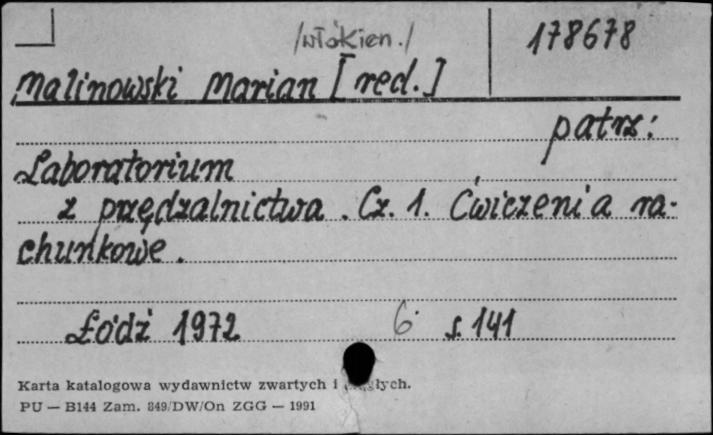 /włókien./ 178678
Malinowski Marian [red.]
patrz:
Laboratorium
z przędzalnictwa. Cz. 1. Ćwiczenia ra-
chunkowe.
Łódź 1972 6 s. 141
Karta katalogowa wydawnictw zwartych i
PU — B144 Zam. 849/DW/On ZGG — 1991